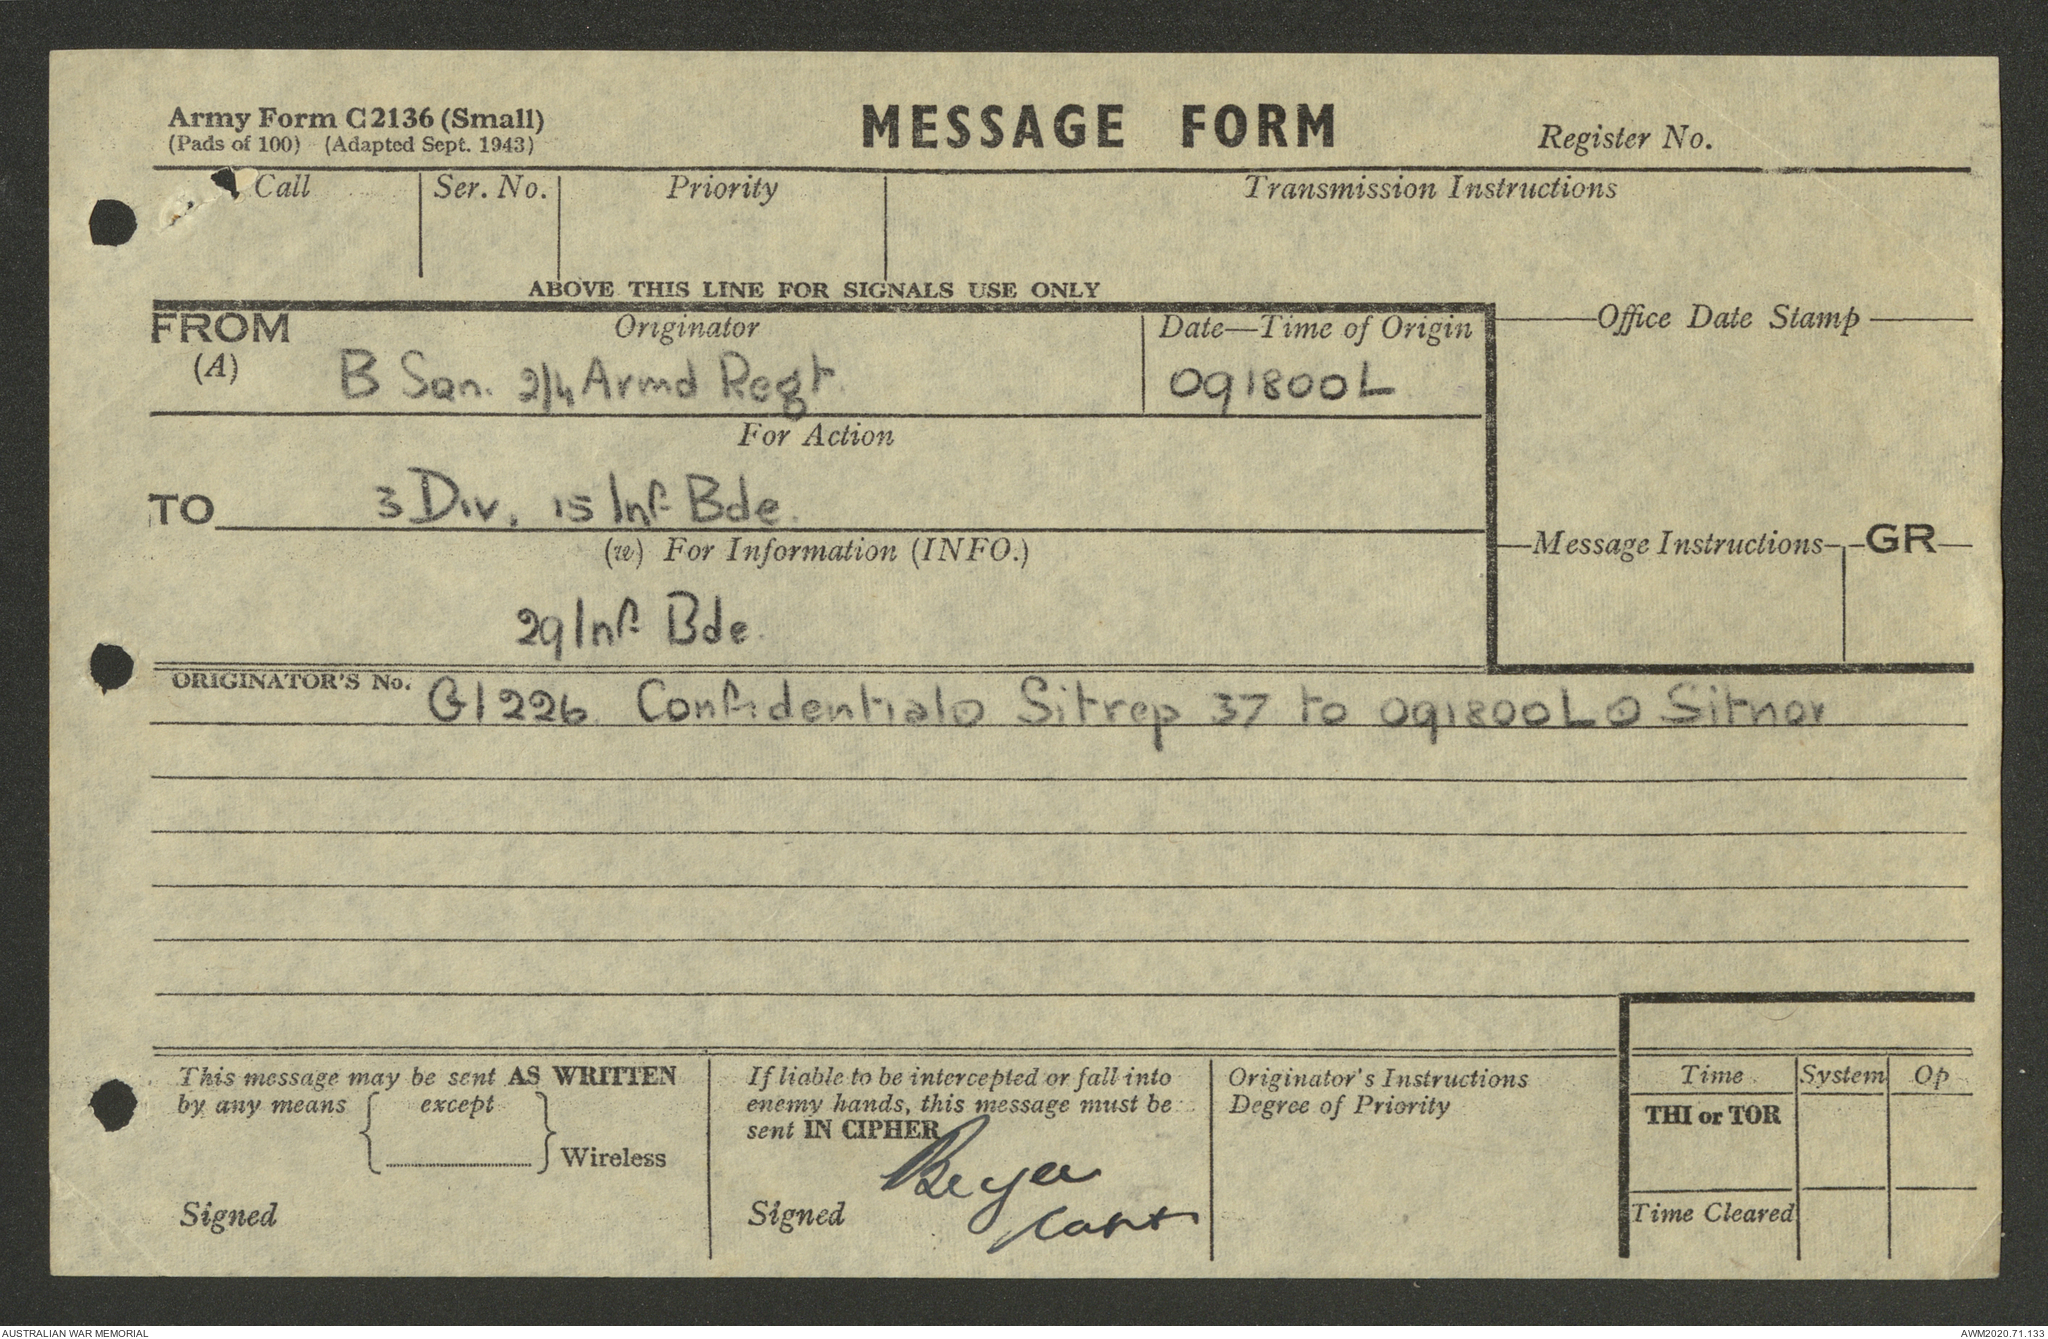 Army Form C2136 (Small)
(Pads of 100) (Adapted Sept. 1943)
MESSAGE FORM
Register No.
Call
Ser. No.
Priority
Transmission Instructions
ABOVE THIS LINE FOR SIGNALS USE ONLY
FROM
(A)
Originator
B Sqn. 2/4 Armd Regt.
Date—Time of Origin
091800L
Office Date Stamp
For Action
TO
3 Div. 15 Inf Bde.
(w) For Information (INFO.)
29 Inf Bde.
Message Instructions
GR
ORIGINATOR'S No.
G1226 Confidential O Sitrep 37 to 091800L O Sitnor
This message may be sent AS WRITTEN
by any means { except } Wireless
Signed
If liable to be intercepted or fall into
enemy hands, this message must be
sent IN CIPHER
Signed
Capt
Originator's Instructions
Degree of Priority
Time
System
Op
THI or TOR
Time Cleared
AUSTRALIAN WAR MEMORIAL
AWM2020.71.133